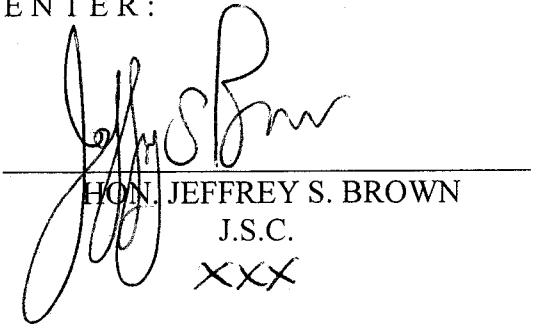 ENTER:
Jeffrey S Brown
HON. JEFFREY S. BROWN
J.S.C.
XXX